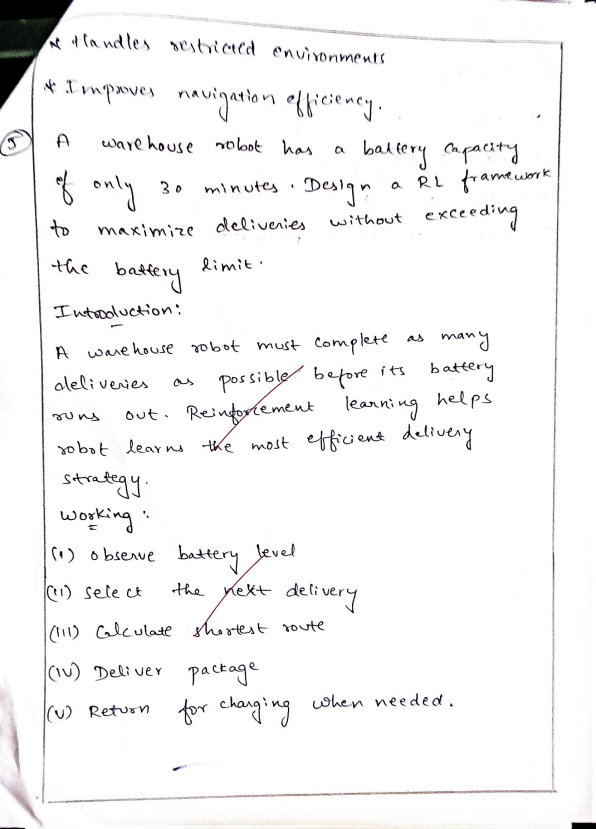 * Handles restricted environments
* Improves navigation efficiency.
5 A warehouse robot has a battery capacity
of only 30 minutes. Design a RL framework
to maximize deliveries without exceeding
the battery limit.
Introduction:
A warehouse robot must complete as many
deliveries as possible before its battery
runs out. Reinforcement learning helps
robot learns the most efficient delivery
strategy.
Working:
(i) observe battery level
(ii) select the next delivery
(iii) Calculate shortest route
(iv) Deliver package
(v) Return for charging when needed.